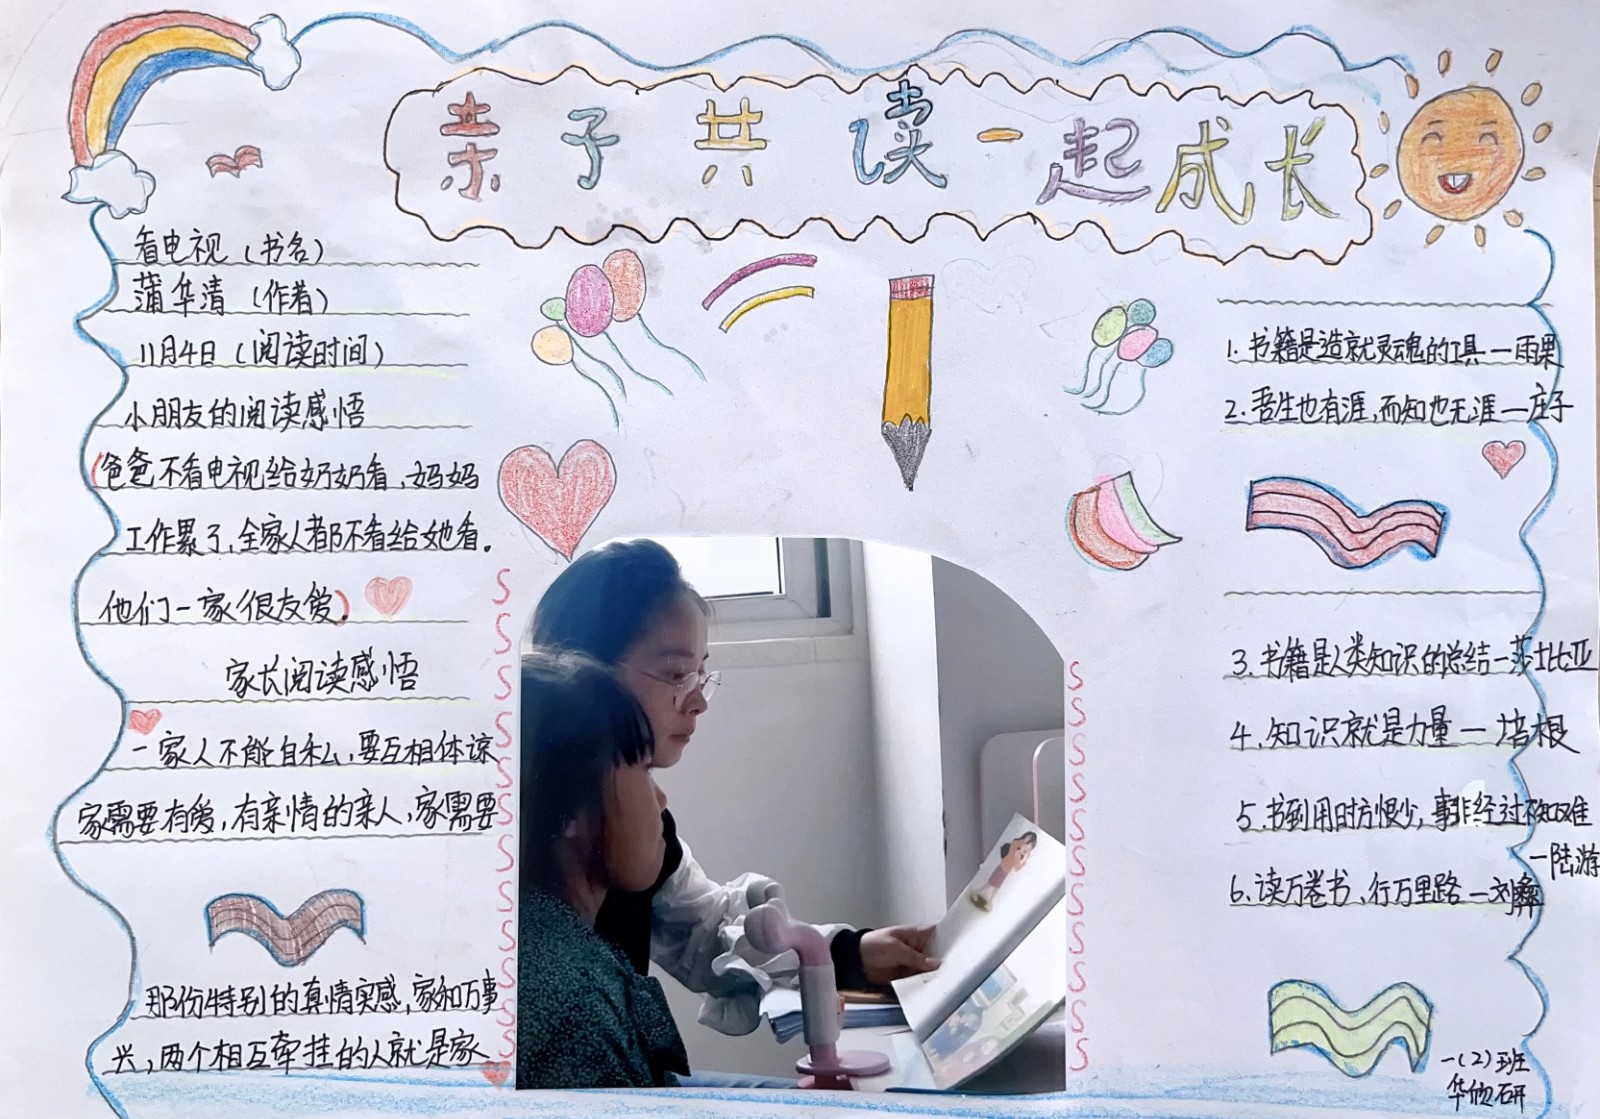 亲子共读一起成长
看电视（书名）
蒲华清（作者）
11月4日（阅读时间）
小朋友的阅读感悟
爸爸不看电视给奶奶看，妈妈
工作累了，全家人都不看给她看。
他们一家很友爱。
家长阅读感悟
一家人不能自私，要互相体谅
家需要有爱，有亲情的亲人，家需要
那份特别的真情实感，家和万事
兴，两个相互牵挂的人就是家
1. 书籍是造就灵魂的工具—雨果
2. 吾生也有涯，而知也无涯—庄子
3. 书籍是人类知识的总结—莎士比亚
4. 知识就是力量—培根
5. 书到用时方恨少，事非经过不知难
—陆游
6. 读万卷书、行万里路—刘彝
一（2）班
华欣研